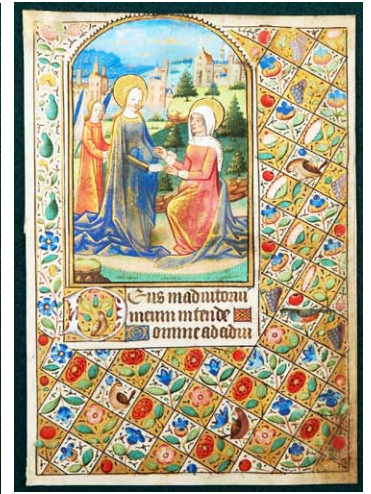 Deus in adiutoriu
meum intende
Domine ad adiu